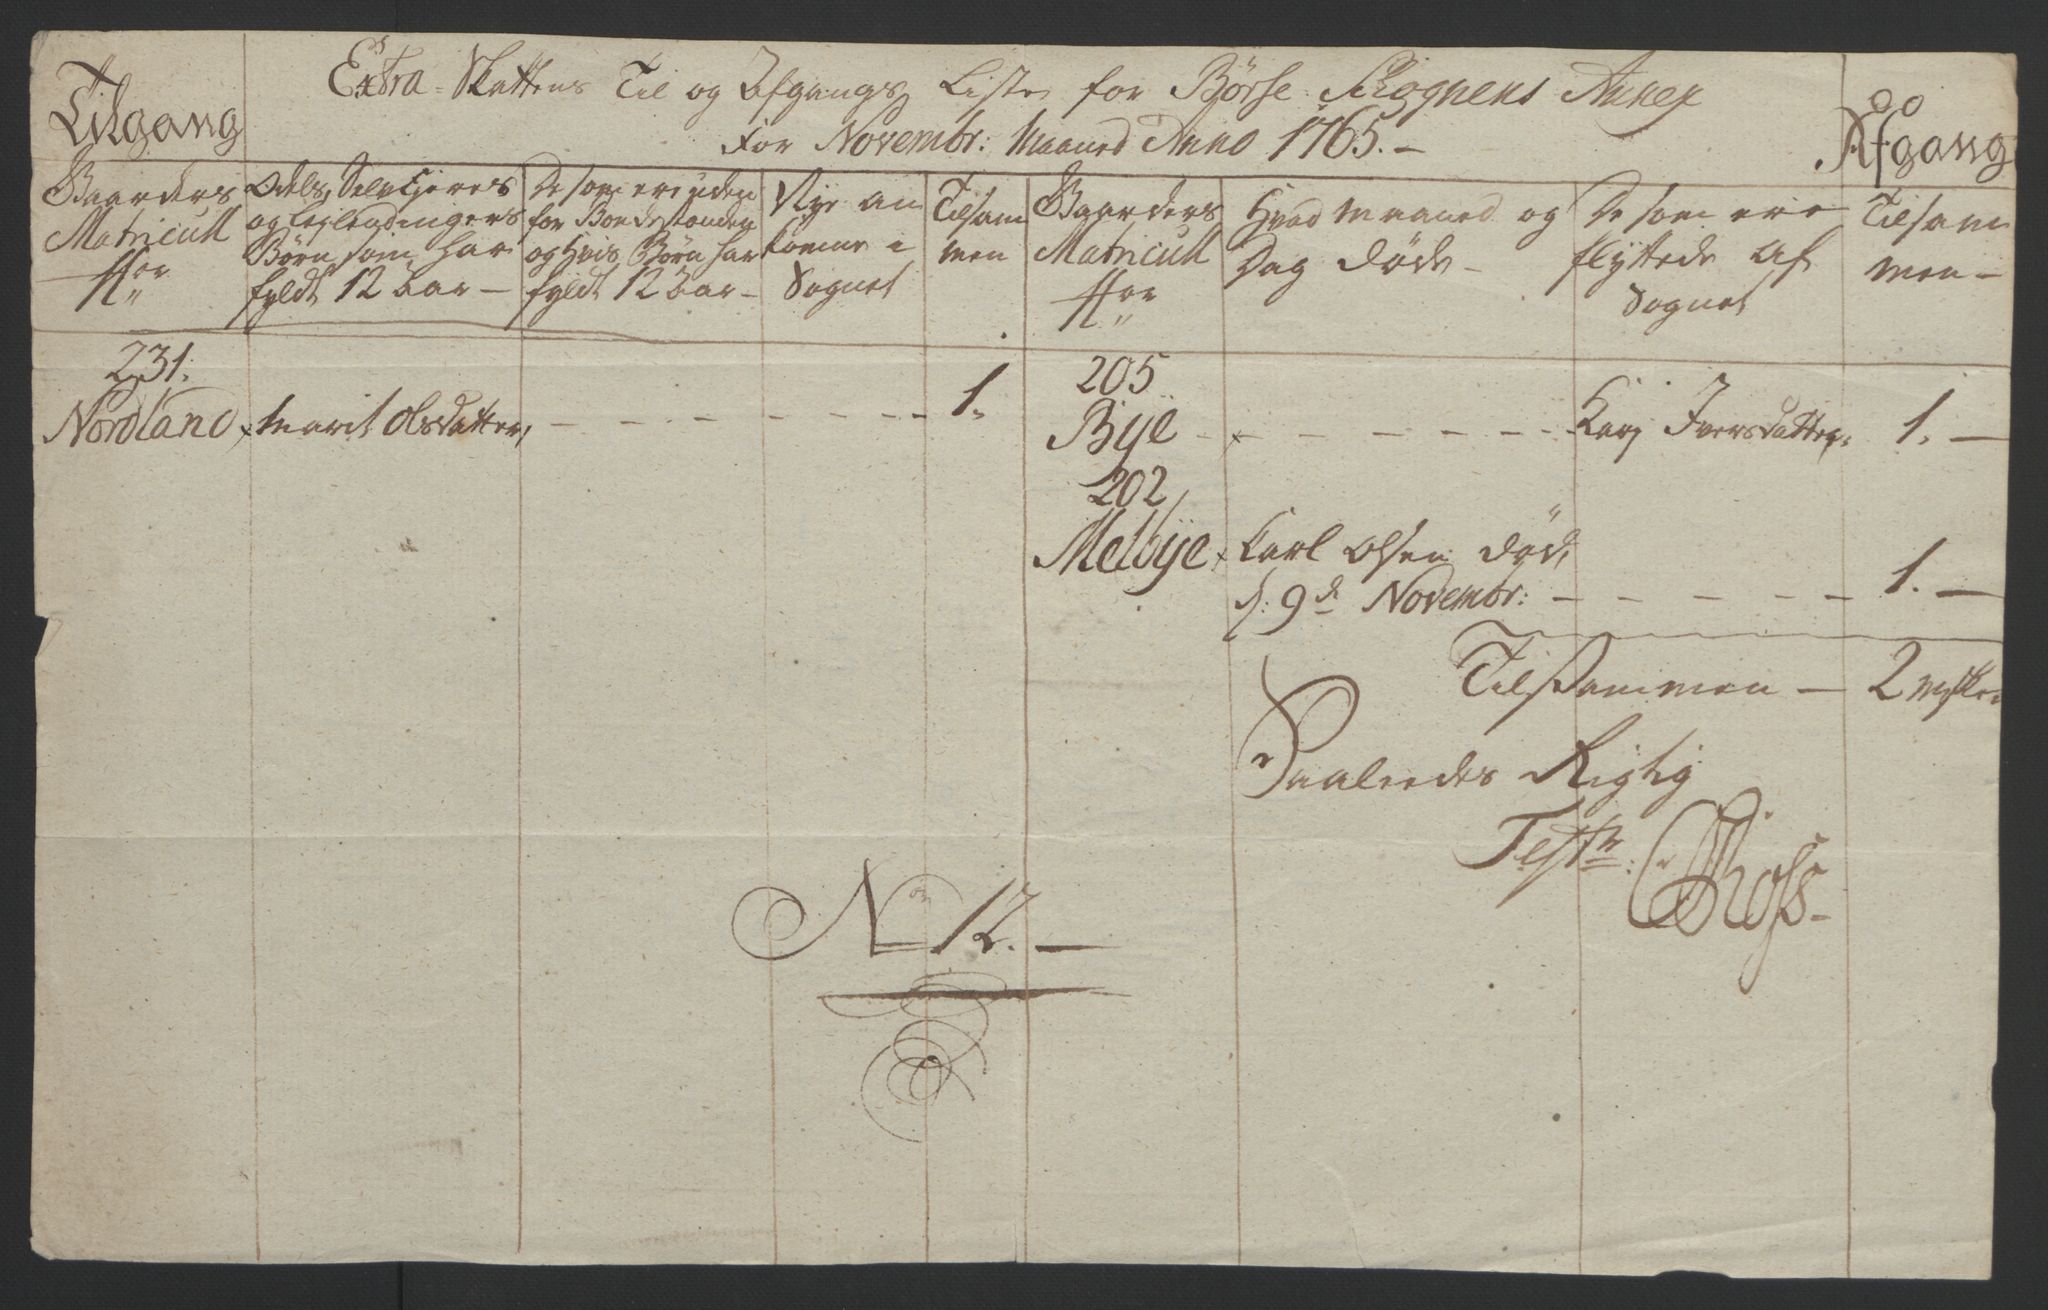 Extra-Skattens Til og Afgangs Liste for Børse Sognens Annex
For Novembr: Maaned Anno 1765. -
Tilgang
Afgang
Gaarders
Matricull
Nor
Odels, Selvejeres
og Leylendingers
Børn som har
fyldt 12 Aar -
De som ere uden
for Bondestanden
og Hvis Børn har
fyldt 12 Aar -
Nye an
komne i
Sognet
Tilsam
men
Gaarders
Matricull
Nor
Hvad Maaned og
Dag døde -
De som ere
flyttede af
Sognet
Tilsam
men -
231.
Nordland
Marit Olsdatter,
1.
205
Bye
Kari Iversdatter.
1. -
202
Melbye
Karl Olsen død
d: 9de Novembr:
1. -
Tilsammen - 2 msker
Saaledes Rigtig
Test:
No 12. -